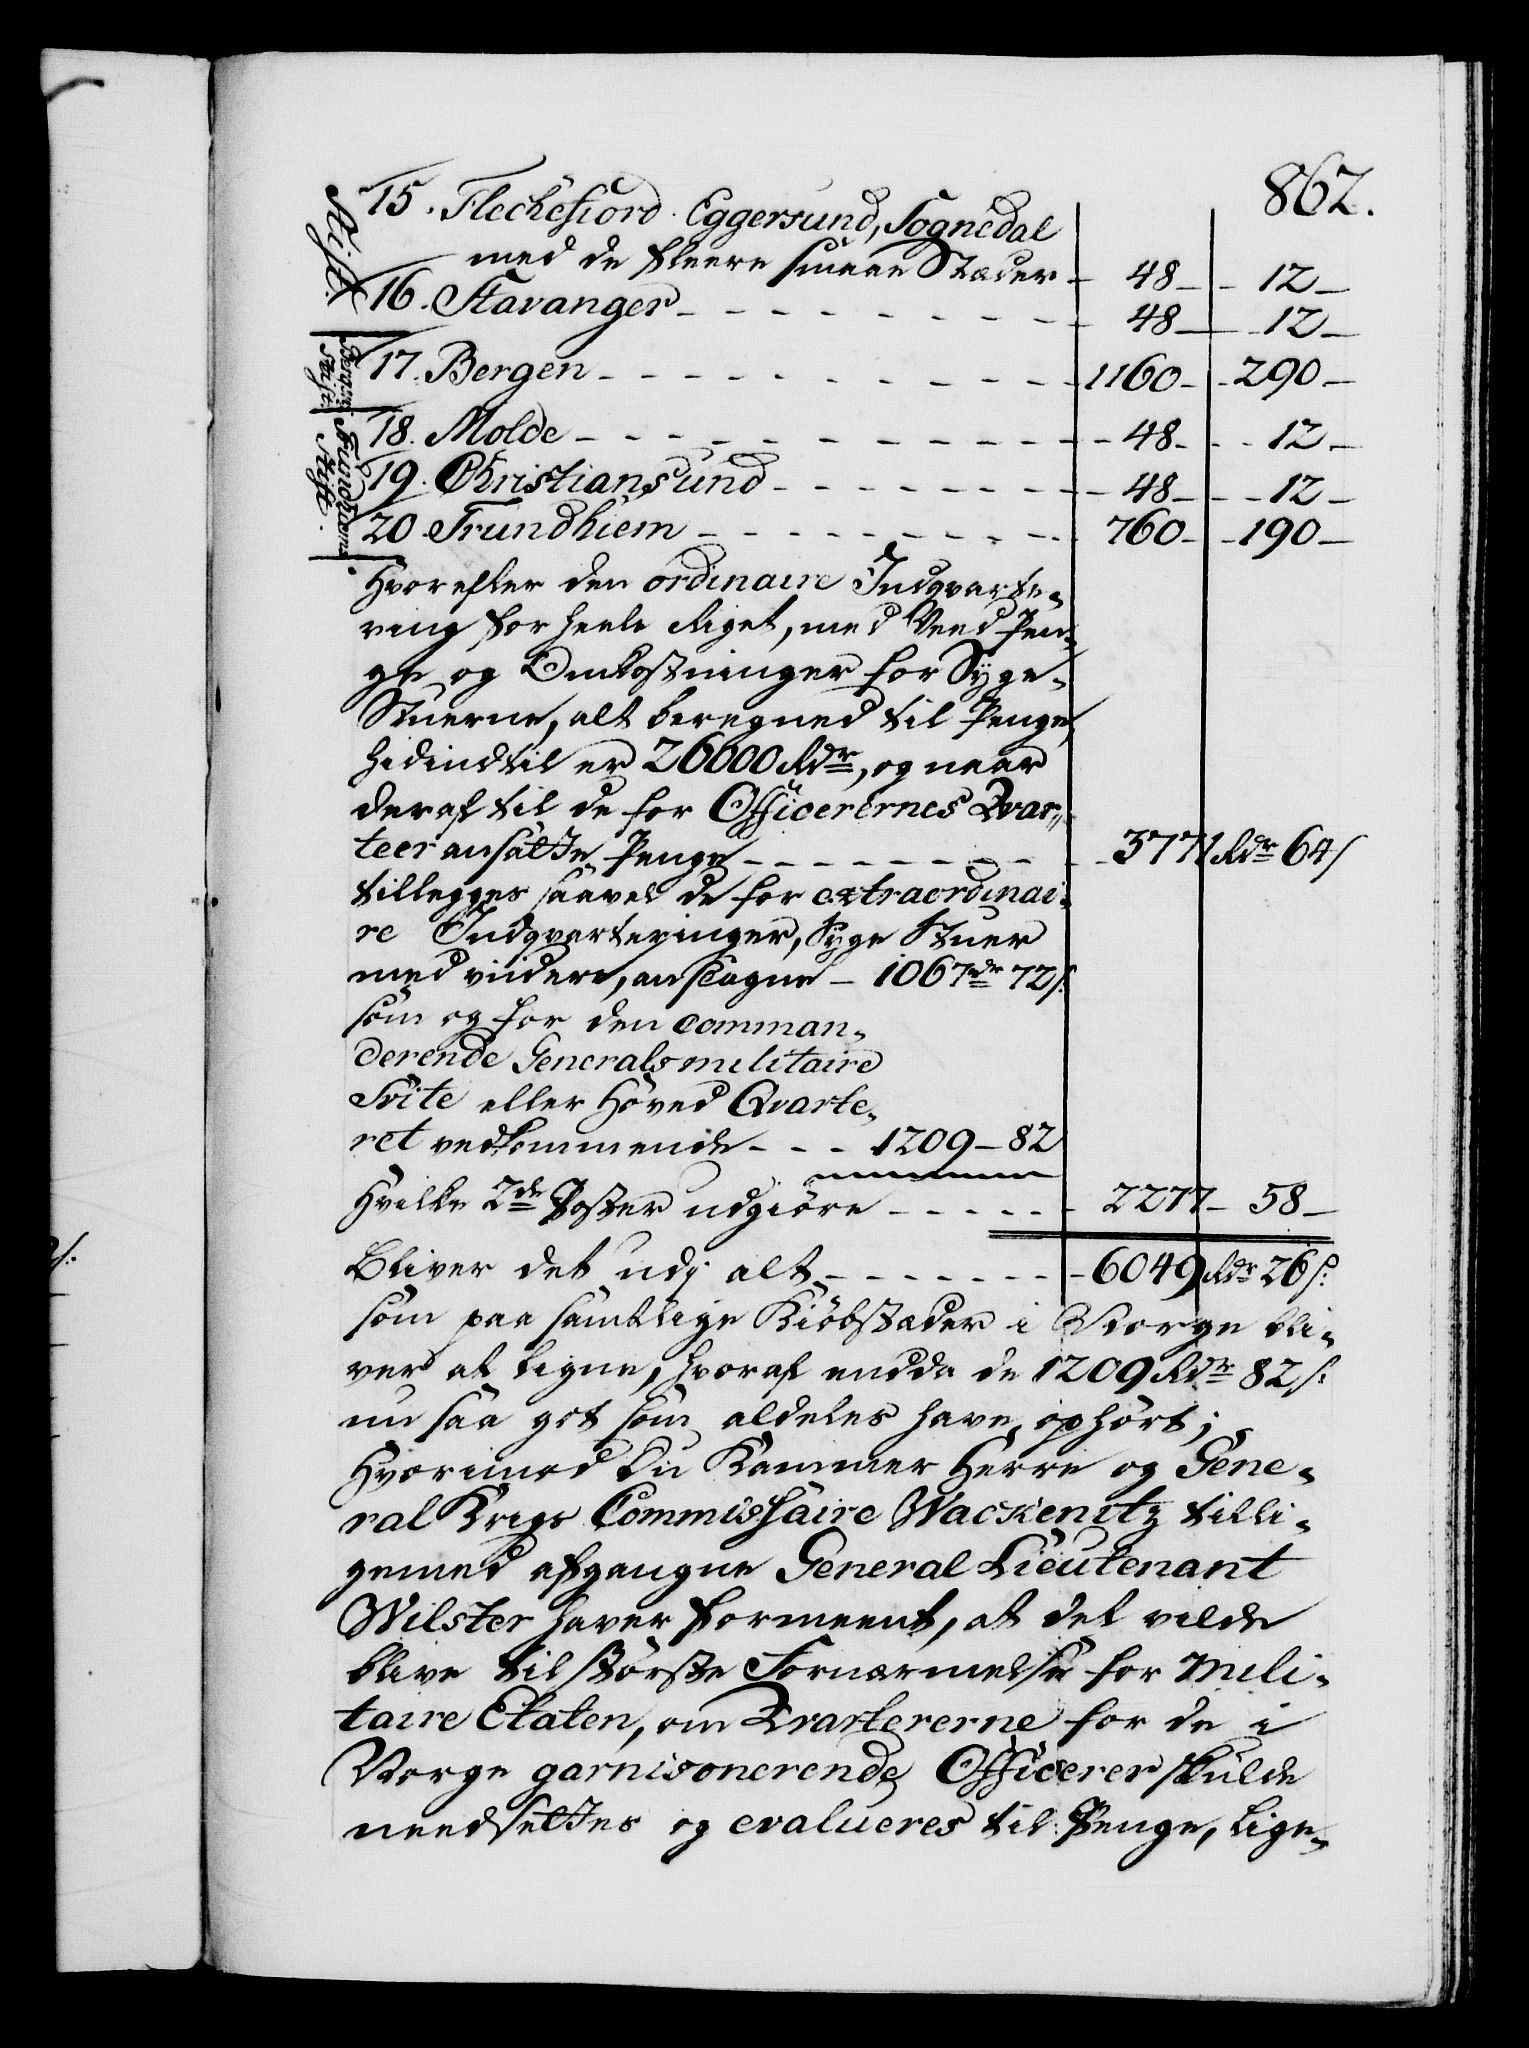 862.
Stift.
15. Fleckefiord. Eggersund, Sognedal
med de fleere smaae Stæder - 48 - - 12 -
16. Stavanger - - - - - - - - - 48 - - 12 -
Bergens Stift.
17. Bergen - - - - - - - - - - 1160 - - 290 -
Trundhiems Stift.
18. Molde - - - - - - - - - - 48 - - - 12 -
19. Christiansund - - - - - - - - 48 - - - 12 -
20. Trundhiem - - - - - - - - - 760 - - 190 -
Hvorefter den ordinaire Indqvarte-
ring for heele Riget, med Veed Pen-
ge og Omkostninger for Syge-
Stuerne, alt beregned til Penge,
hidindtil er 26000 Rdr, og naar
deraf til de for Officerernes Qvar-
teer ansatte Penge - - - - - - - 3771 Rdr 64 s
tillegges saavel de for extraordinai-
re Indqvarteringer, Syge Stuer
med viidere, anslagne - 1067 rdr 72 s:
som og for den comman-
derende Generals militaire
Svite eller Hoved Qvarte-
ret vedkommende - - - 1209 - 82
Hvilke 2de Poster udgiöre - - - - - 2277 - 58 -
Bliver det udj alt - - - - - - - - 6049 Rdr 26 s:
som paa samtlige Kiöbstæder i Norge bli-
ver at ligne, hvoraf endda de 1209 Rdr 82 s:
nu saa got som aldeles have ophört;
Hvorimod Du Kammer Herre og Gene-
ral Krigs Commissaire Wackenitz tilli-
gemed afgangne General Lieutenant
Wilster haver formeent, at det vilde
blive til störste Fornærmelse for mili-
taire Etaten, om Qvartererne for de i
Norge garnisonerende Officerer skulde
needsettes og evalueres til Penge, lige-